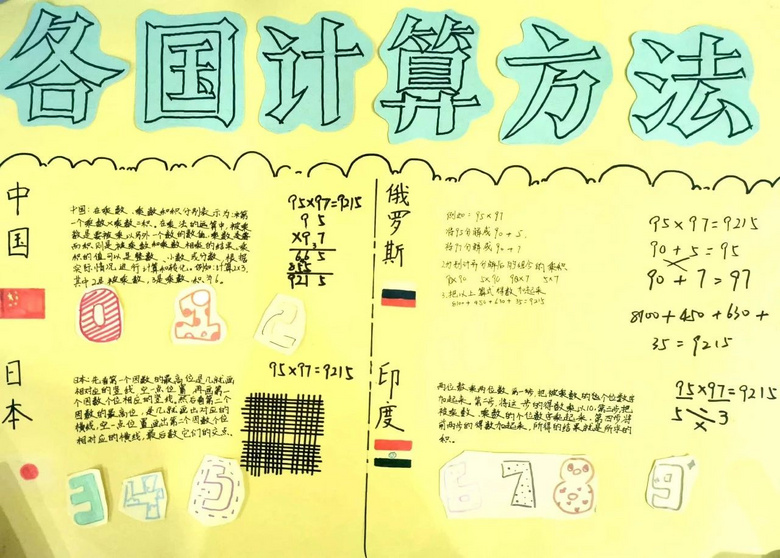 各国计算方法
中国
中国：在乘数、乘数和积分别表示为：第一
个乘数×乘数=积。在乘法的运算中，被乘
数是要被乘以另外一个数的数值，乘数是要
而积则是被乘数和乘数相乘的结果。乘
积的值可以是整数、小数或分数，根据
实际情况，进行计算和转化。例如：计算2×3，
其中2是被乘数，3是乘数，积为6。
95×97=9215
95
×97
665
855
9215
0
1
2
俄罗斯
例如：95×97
将95分解成90+5.
将97分解成90+7
90×90 5×90 90×7 5×7
3.把以上算式得数加起来
8100+450+630+35=9215
95×97=9215
90+5=95
90+7=97
8100+450+630+
35=9215
日本
日本：先看第一个因数的最高位是几，就画
相对应的竖线，空一点位置，再画第一
个因数个位相应的竖线，然后看第二个
因数的最高位，是几，就画出对应的
横线，空一点位置画出第二个因数个位
相对应的横线，最后数它们的交点。
95×97=9215
3
4
5
印度
两位数乘两位数，第一步，把被乘数的与个位数字
加起来，第二步，将这一步的得数乘以10，第三步，把
被乘数、乘数的个位数字乘起来，第四步，将
前两步的得数加起来，所得的结果就是所求的
积。
95×97=9215
5 3
6
7
8
9